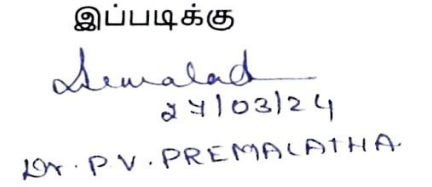 இப்படிக்கு
27/03/24
Dr. P V. PREMALATHA.